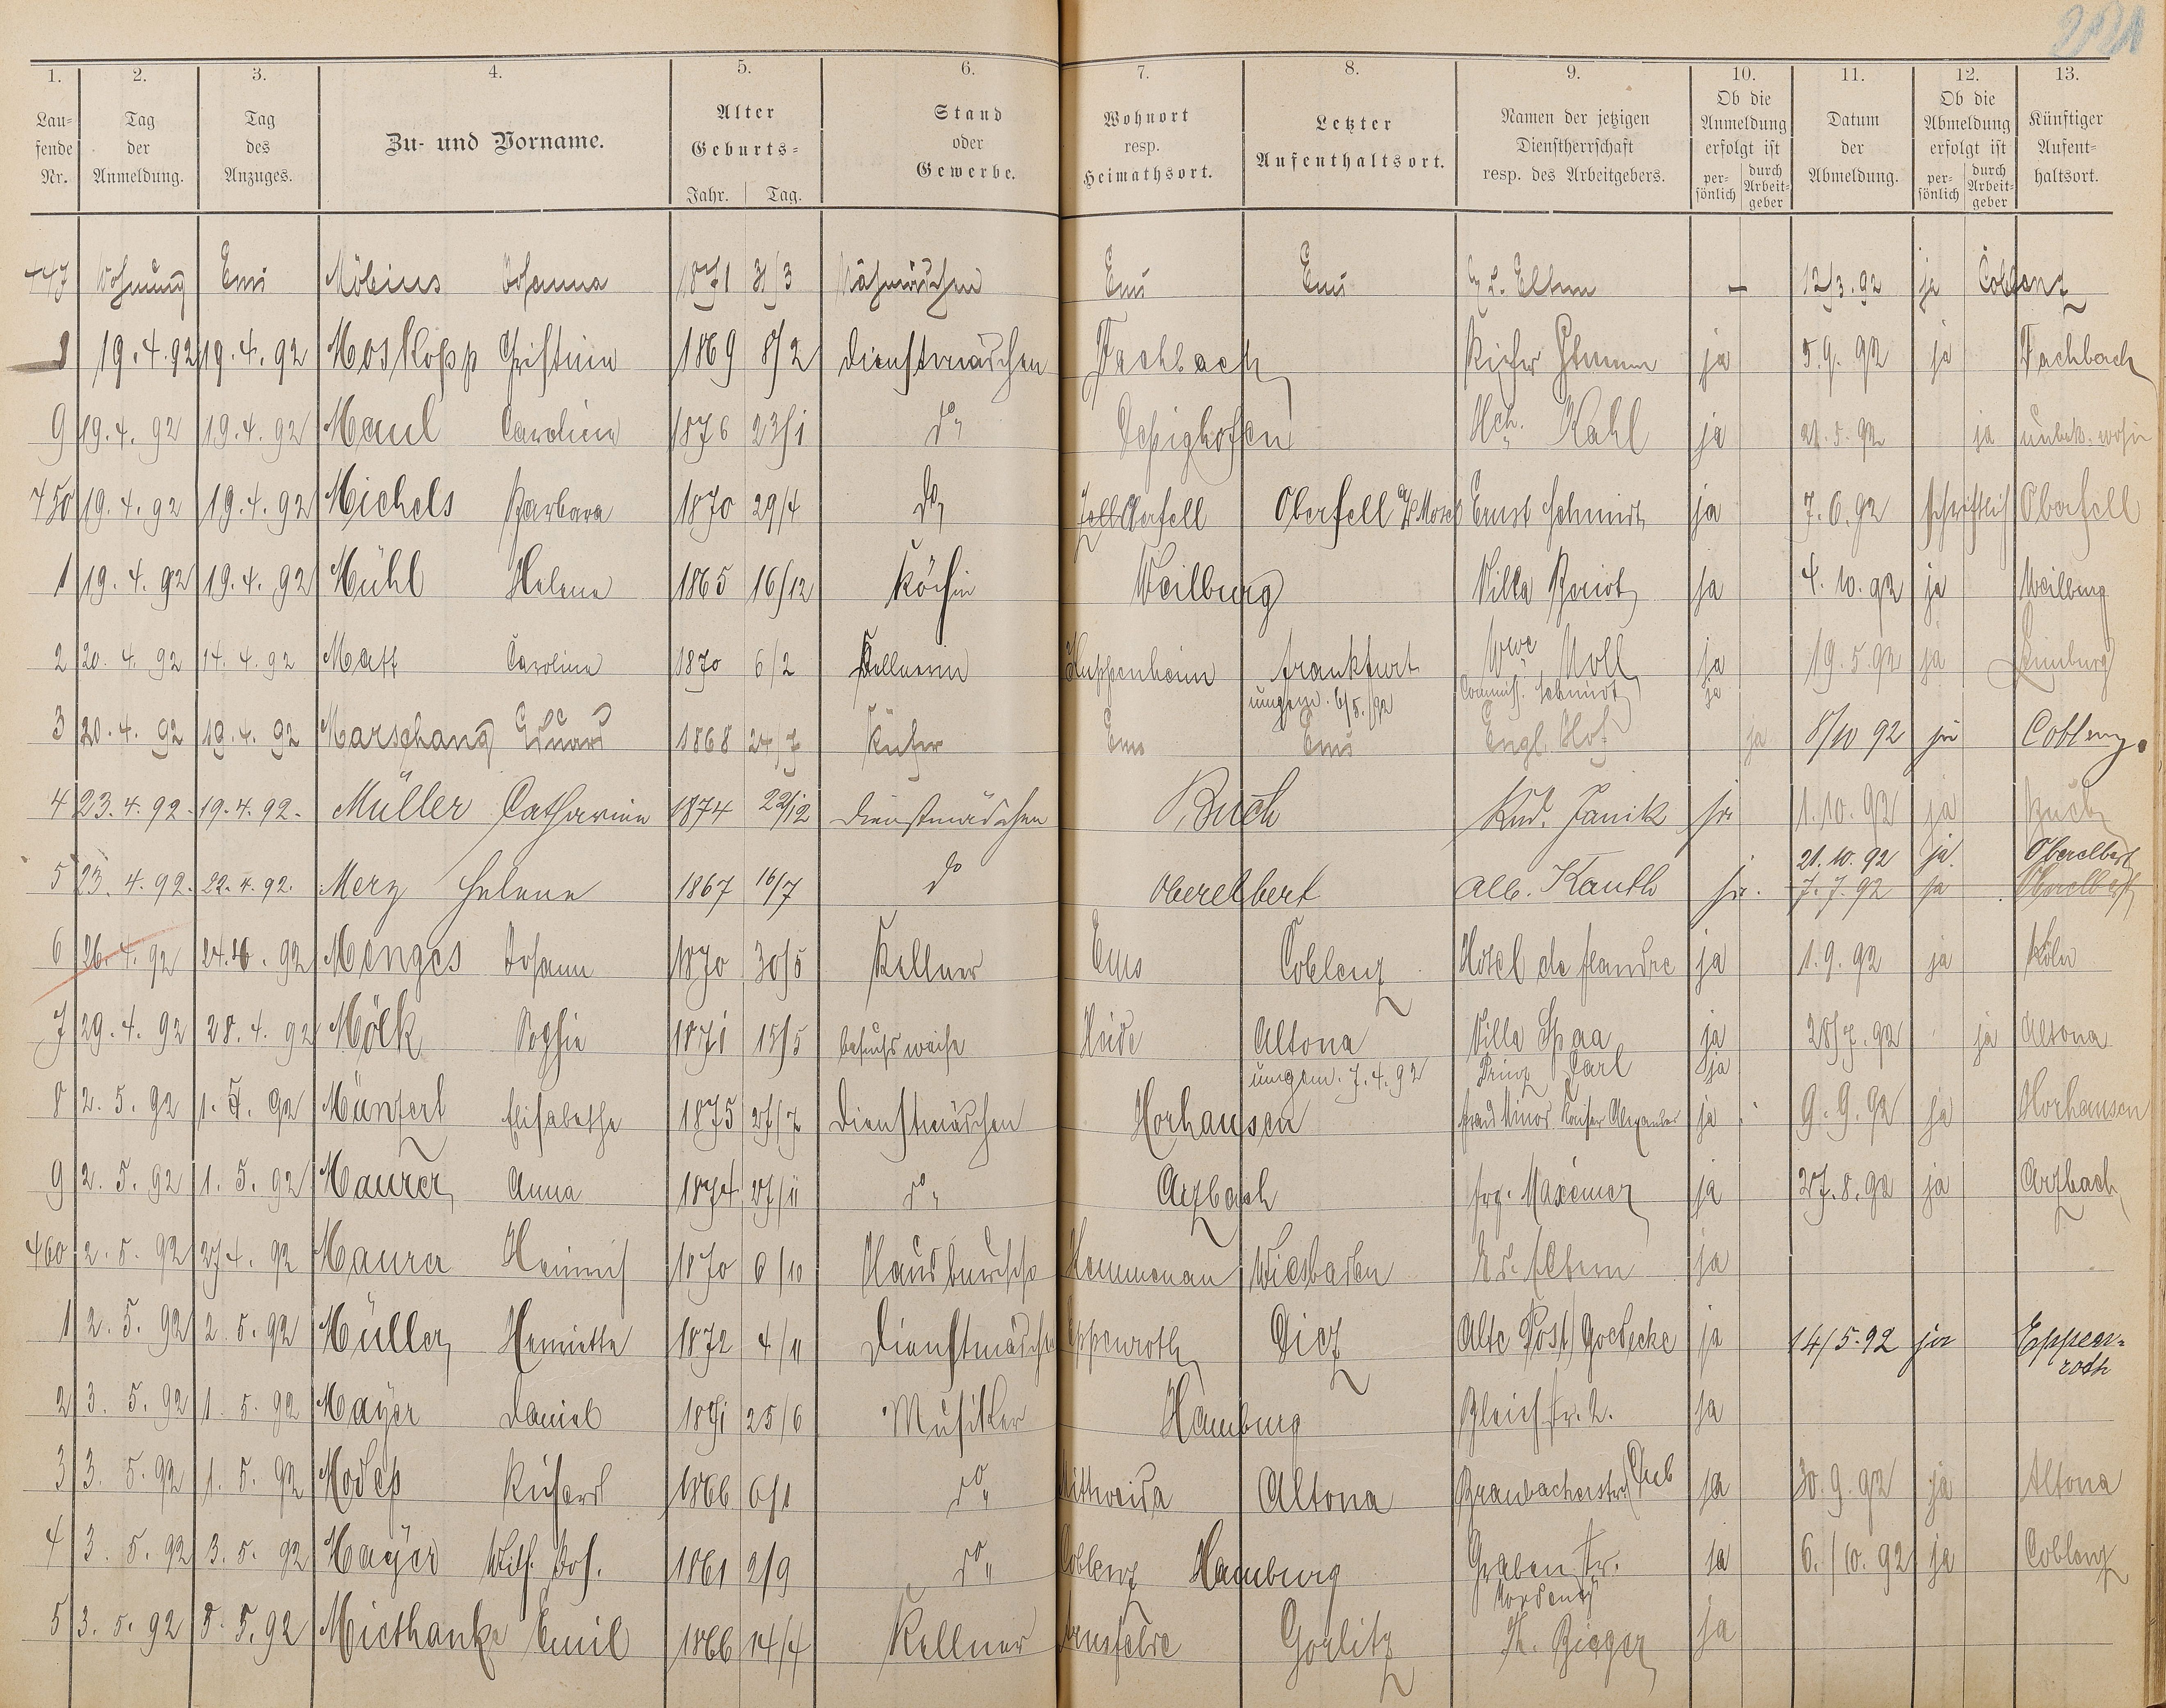 1. 2. 3. 4. 5. 6. 7. 8. 9. 10. 11. 12. 13.
Laufende Nr. Tag der Anmeldung. Tag des Anzuges. Zu- und Vorname. Alter Geburts- Jahr. Tag. Stand oder Gewerbe. Wohnort resp. Heimathsort. Letzter Aufenthaltsort. Namen der jetzigen Dienstherrschaft resp. des Arbeitgebers. Ob die Anmeldung erfolgt ist persönlich durch Arbeitgeber Datum der Abmeldung. Ob die Abmeldung erfolgt ist persönlich durch Arbeitgeber Künftiger Aufenthaltsort.
447 Wohnung Ems Möbius Johanna 1871 31/3 Nähmädchen Ems Ems b. d. Eltern – 12/3.92 ja Coblenz
19.4.92 19.4.92 Moskopp Christine 1869 8/2 Dienstmädchen Fachbach ja 5.9.92 ja Fachbach
9 19.4.92 19.4.92 Maul Caroline 1876 23/1 do Dessighofen Hch. Kahl ja 21.5.92 ja unbek. wohin
450 19.4.92 19.4.92 Michels Barbara 1870 29/4 do Oberfell Oberfell a/Mosel Ernst Schmidt ja 7.6.92 schriftlich Oberfell
1 19.4.92 19.4.92 Mühl Helene 1865 16/12 Köchin Weilburg Villa Beriot ja 4.10.92 ja Weilburg
2 20.4.92 14.4.92 Maff Caroline 1870 6/2 Kellnerin Kuppenheim Frankfurt Wwe Noll ja 19.5.92 ja Limburg
umgez. 6/5./92 Commiss. Schmidt ja
3 20.4.92 19.4.92 Marschang Eduard 1868 27/7 Küfer Ems Ems Engl. Hof ja 8/10 92 ja Coblenz.
4 23.4.92. 19.4.92. Müller Catharine 1874 22/12 Dienstmädchen Buch Rud. Janik ja 1.10.92 ja Buch
21.10.92 ja. Oberelbert
5 23.4.92. 22.4.92. Merz Helene 1867 16/7 do Oberelbert Alb. Kauth ja. 7.7.92 ja Oberelbert
6 26.4.92 24.4.92 Menges Johann 1870 30/5 Kellner Ems Coblenz Hotel de flandre ja 1.9.92 ja Köln
7 29.4.92 28.4.92 Mölk Sophie 1871 15/5 besuchsweise Heide Altona Villa Spaa ja 28/7.92 ja Altona
umgem. 7.4.92 Prinz Carl ja
8 2.5.92 1.5.92 Münfert Elisabethe 1875 27/7 Dienstmädchen Horhausen Frau Minor Kaiser Alexander ja 9.9.92 ja Horhausen
9 2.5.92 1.5.92 Maurer Anna 1874 27/11 do Arzbach Frz. Maxeiner ja 27.8.92 ja Arzbach
460 2.5.92 27.4.92 Maurer Heinrich 1870 6/10 Hausbursche Kemmenau Wiesbaden ja
1 2.5.92 2.5.92 Müller Henriette 1872 4/11 Dienstmädchen Eppenroth Diez Alte Post Goedecke ja 14/5.92 ja Eppenroth
2 3.5.92 1.5.92 Mayer Daniel 1871 25/6 Musiker Hamburg Bleichstr. 2. ja
3 3.5.92 1.5.92 Modess Richard 1866 6/1 do Mittweida Altona Braubacherstr. ja 30.9.92 ja Altona
4 3.5.92 3.5.92 Mayer Wilh. Joh. 1861 2/9 do Coblenz Hamburg Grabenstr. ja 6./10.92 ja Coblenz
5 3.5.92 3.5.92 Miethanke Emil 1866 14/4 Kellner Görlitz Th. Bieger ja